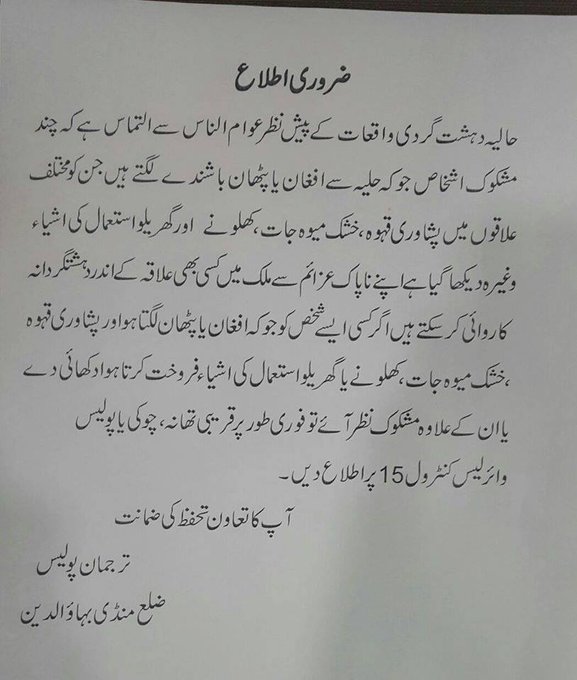 ضروری اطلاع
حالیہ دہشت گردی واقعات کے پیش نظر عوام الناس سے التماس ہے کہ چند
مشکوک اشخاص جو کہ حلیہ سے افغان یا پٹھان باشندے لگتے ہیں جن کو مختلف
علاقوں میں پشاوری قہوہ، خشک میوہ جات، کھلونے اور گھریلو استعمال کی اشیاء
وغیرہ دیکھا گیا ہے اپنے ناپاک عزائم سے ملک میں کسی بھی علاقہ کے اندر دہشتگردانہ
کاروائی کر سکتے ہیں اگر کسی ایسے شخص کو جو کہ افغان یا پٹھان لگتا ہو اور پشاوری قہوہ
، خشک میوہ جات، کھلونے یا گھریلو استعمال کی اشیاء فروخت کرتا ہوا دکھائی دے
یا ان کے علاوہ مشکوک نظر آئے تو فوری طور پر قریبی تھانہ، چوکی یا پولیس
وائرلیس کنٹرول 15 پر اطلاع دیں۔
آپ کا تعاون تحفظ کی ضمانت
ترجمان پولیس
ضلع منڈی بہاؤالدین